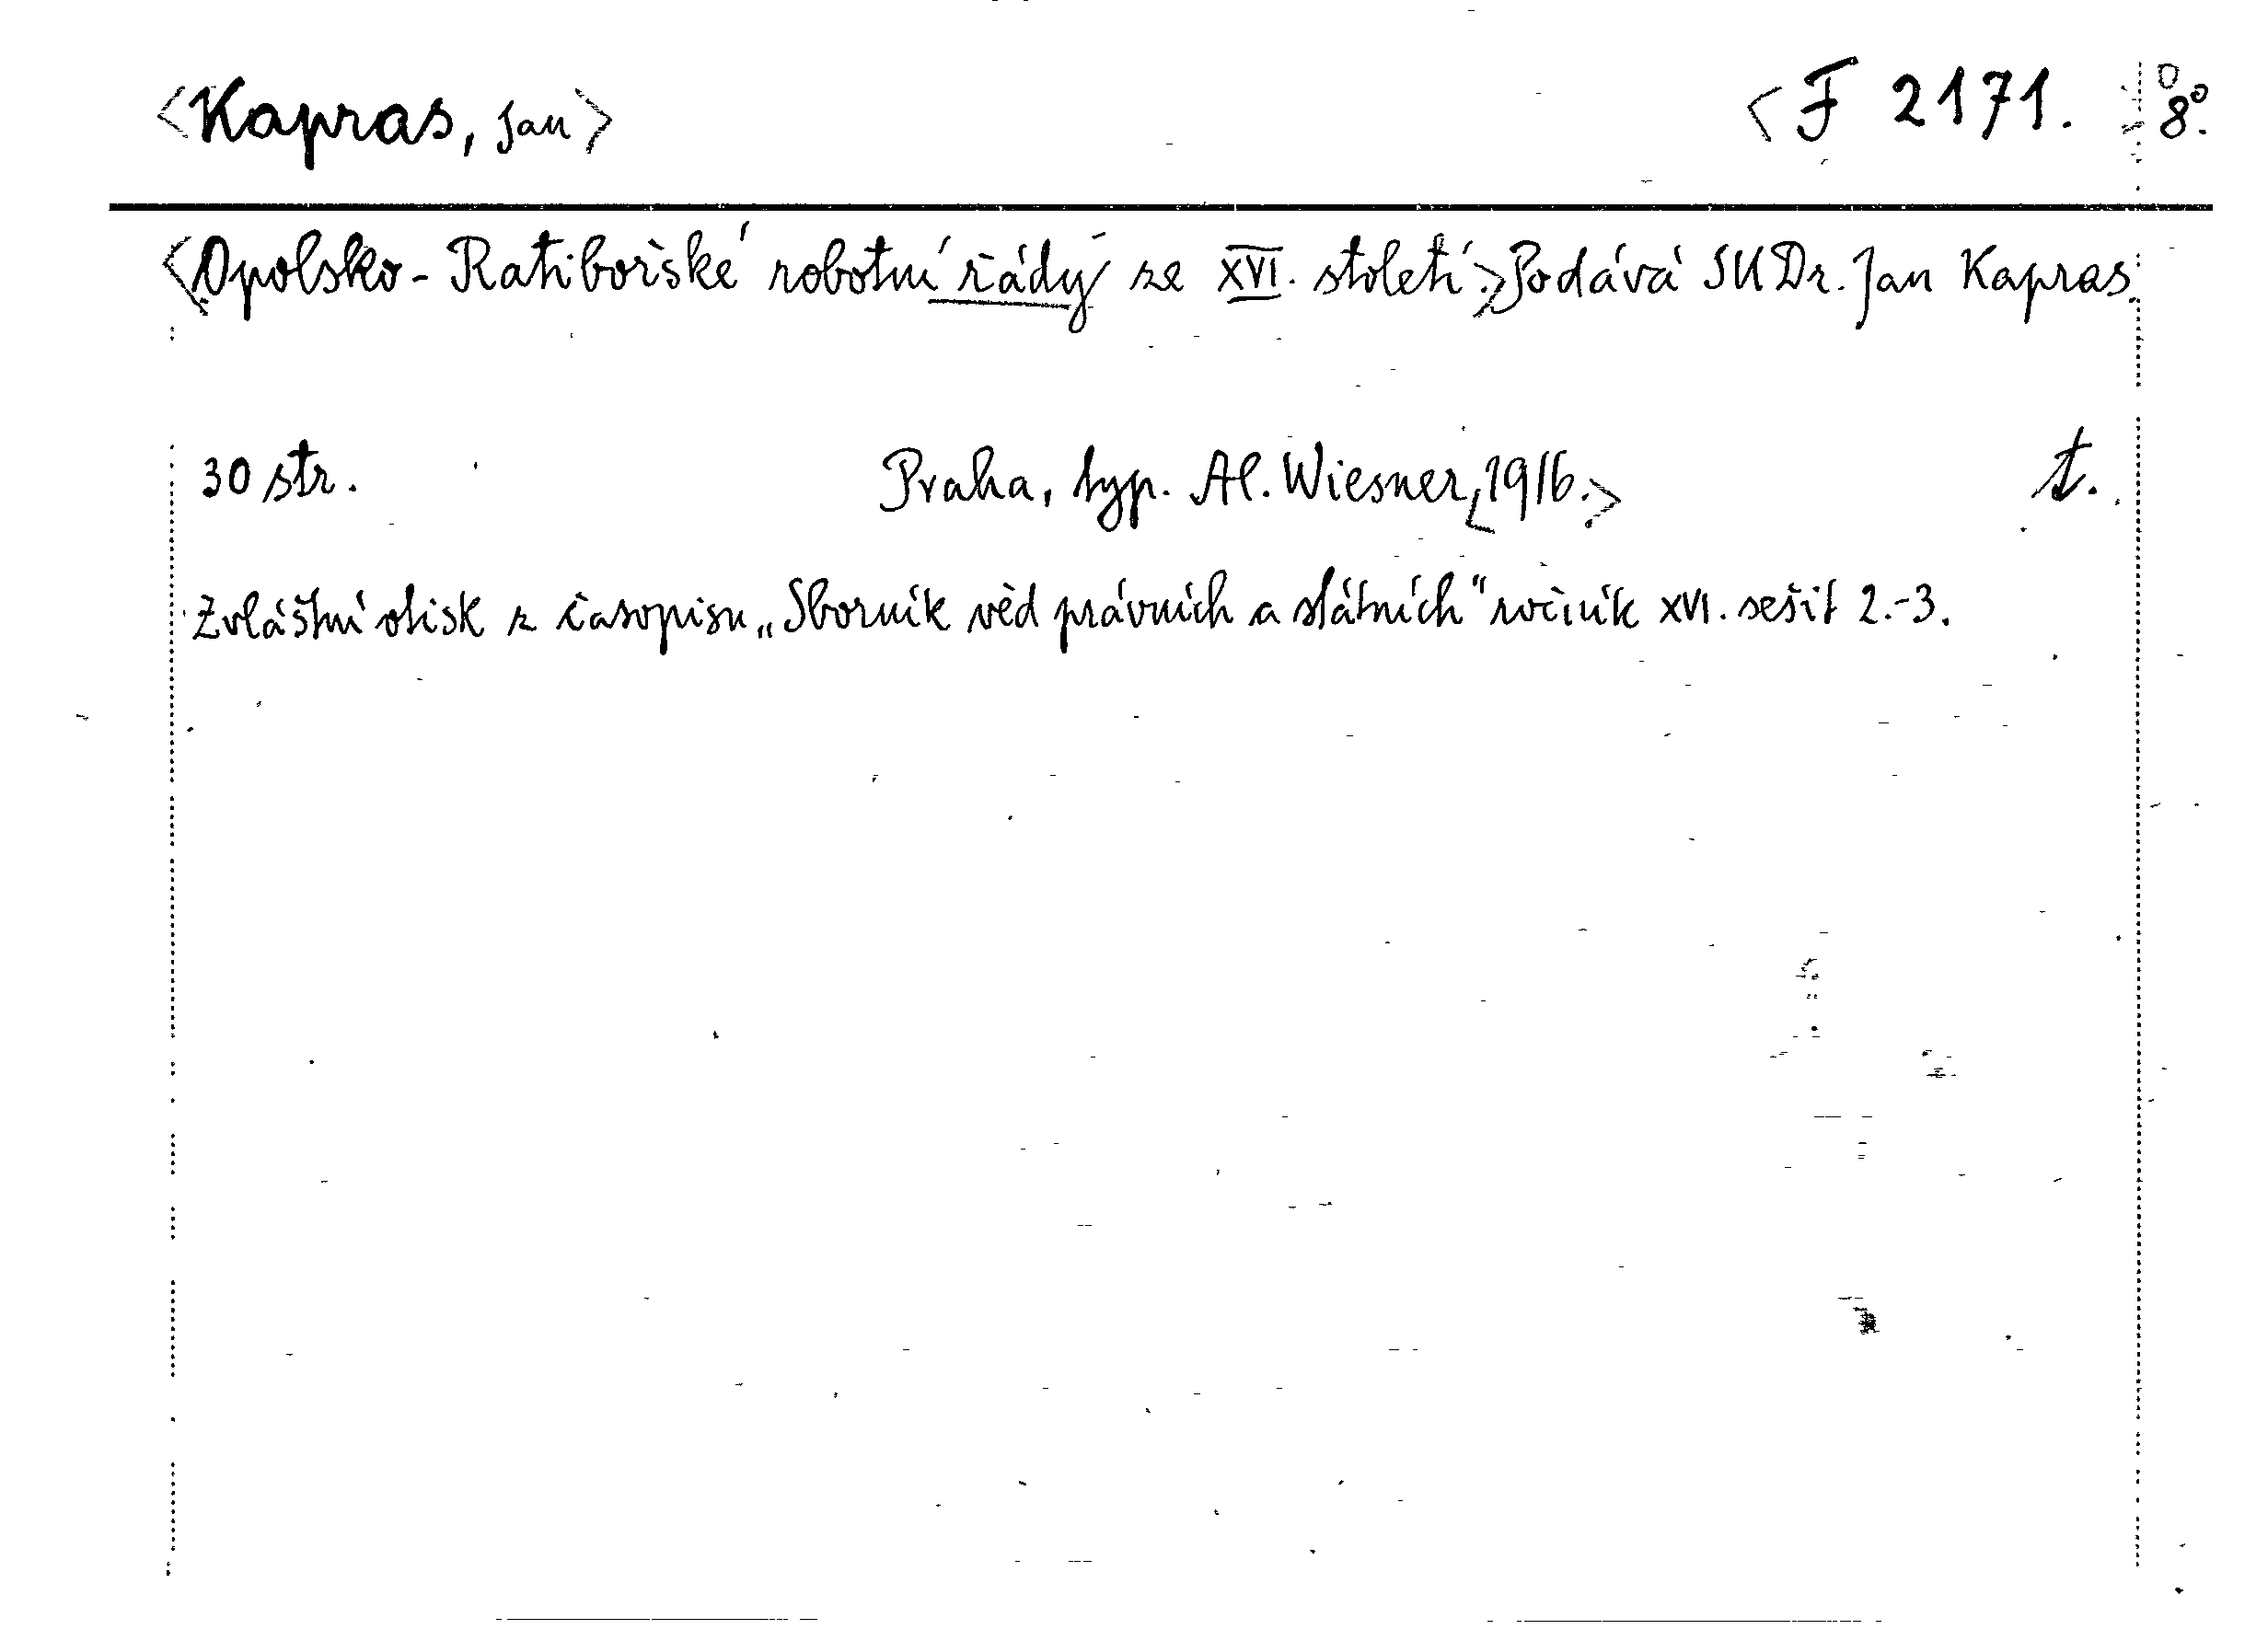 <Kapras, Jan> <F 2171. 8°.
<Opolsko-Ratibořské robotní řády ze XVI. století.> Podává JUDr. Jan Kapras.
30 str. Praha, typ. Al. Wiesner, <1916.> t.
Zvláštní otisk z časopisu „Sborník věd právních a státních" ročník XVI. sešit 2.-3.